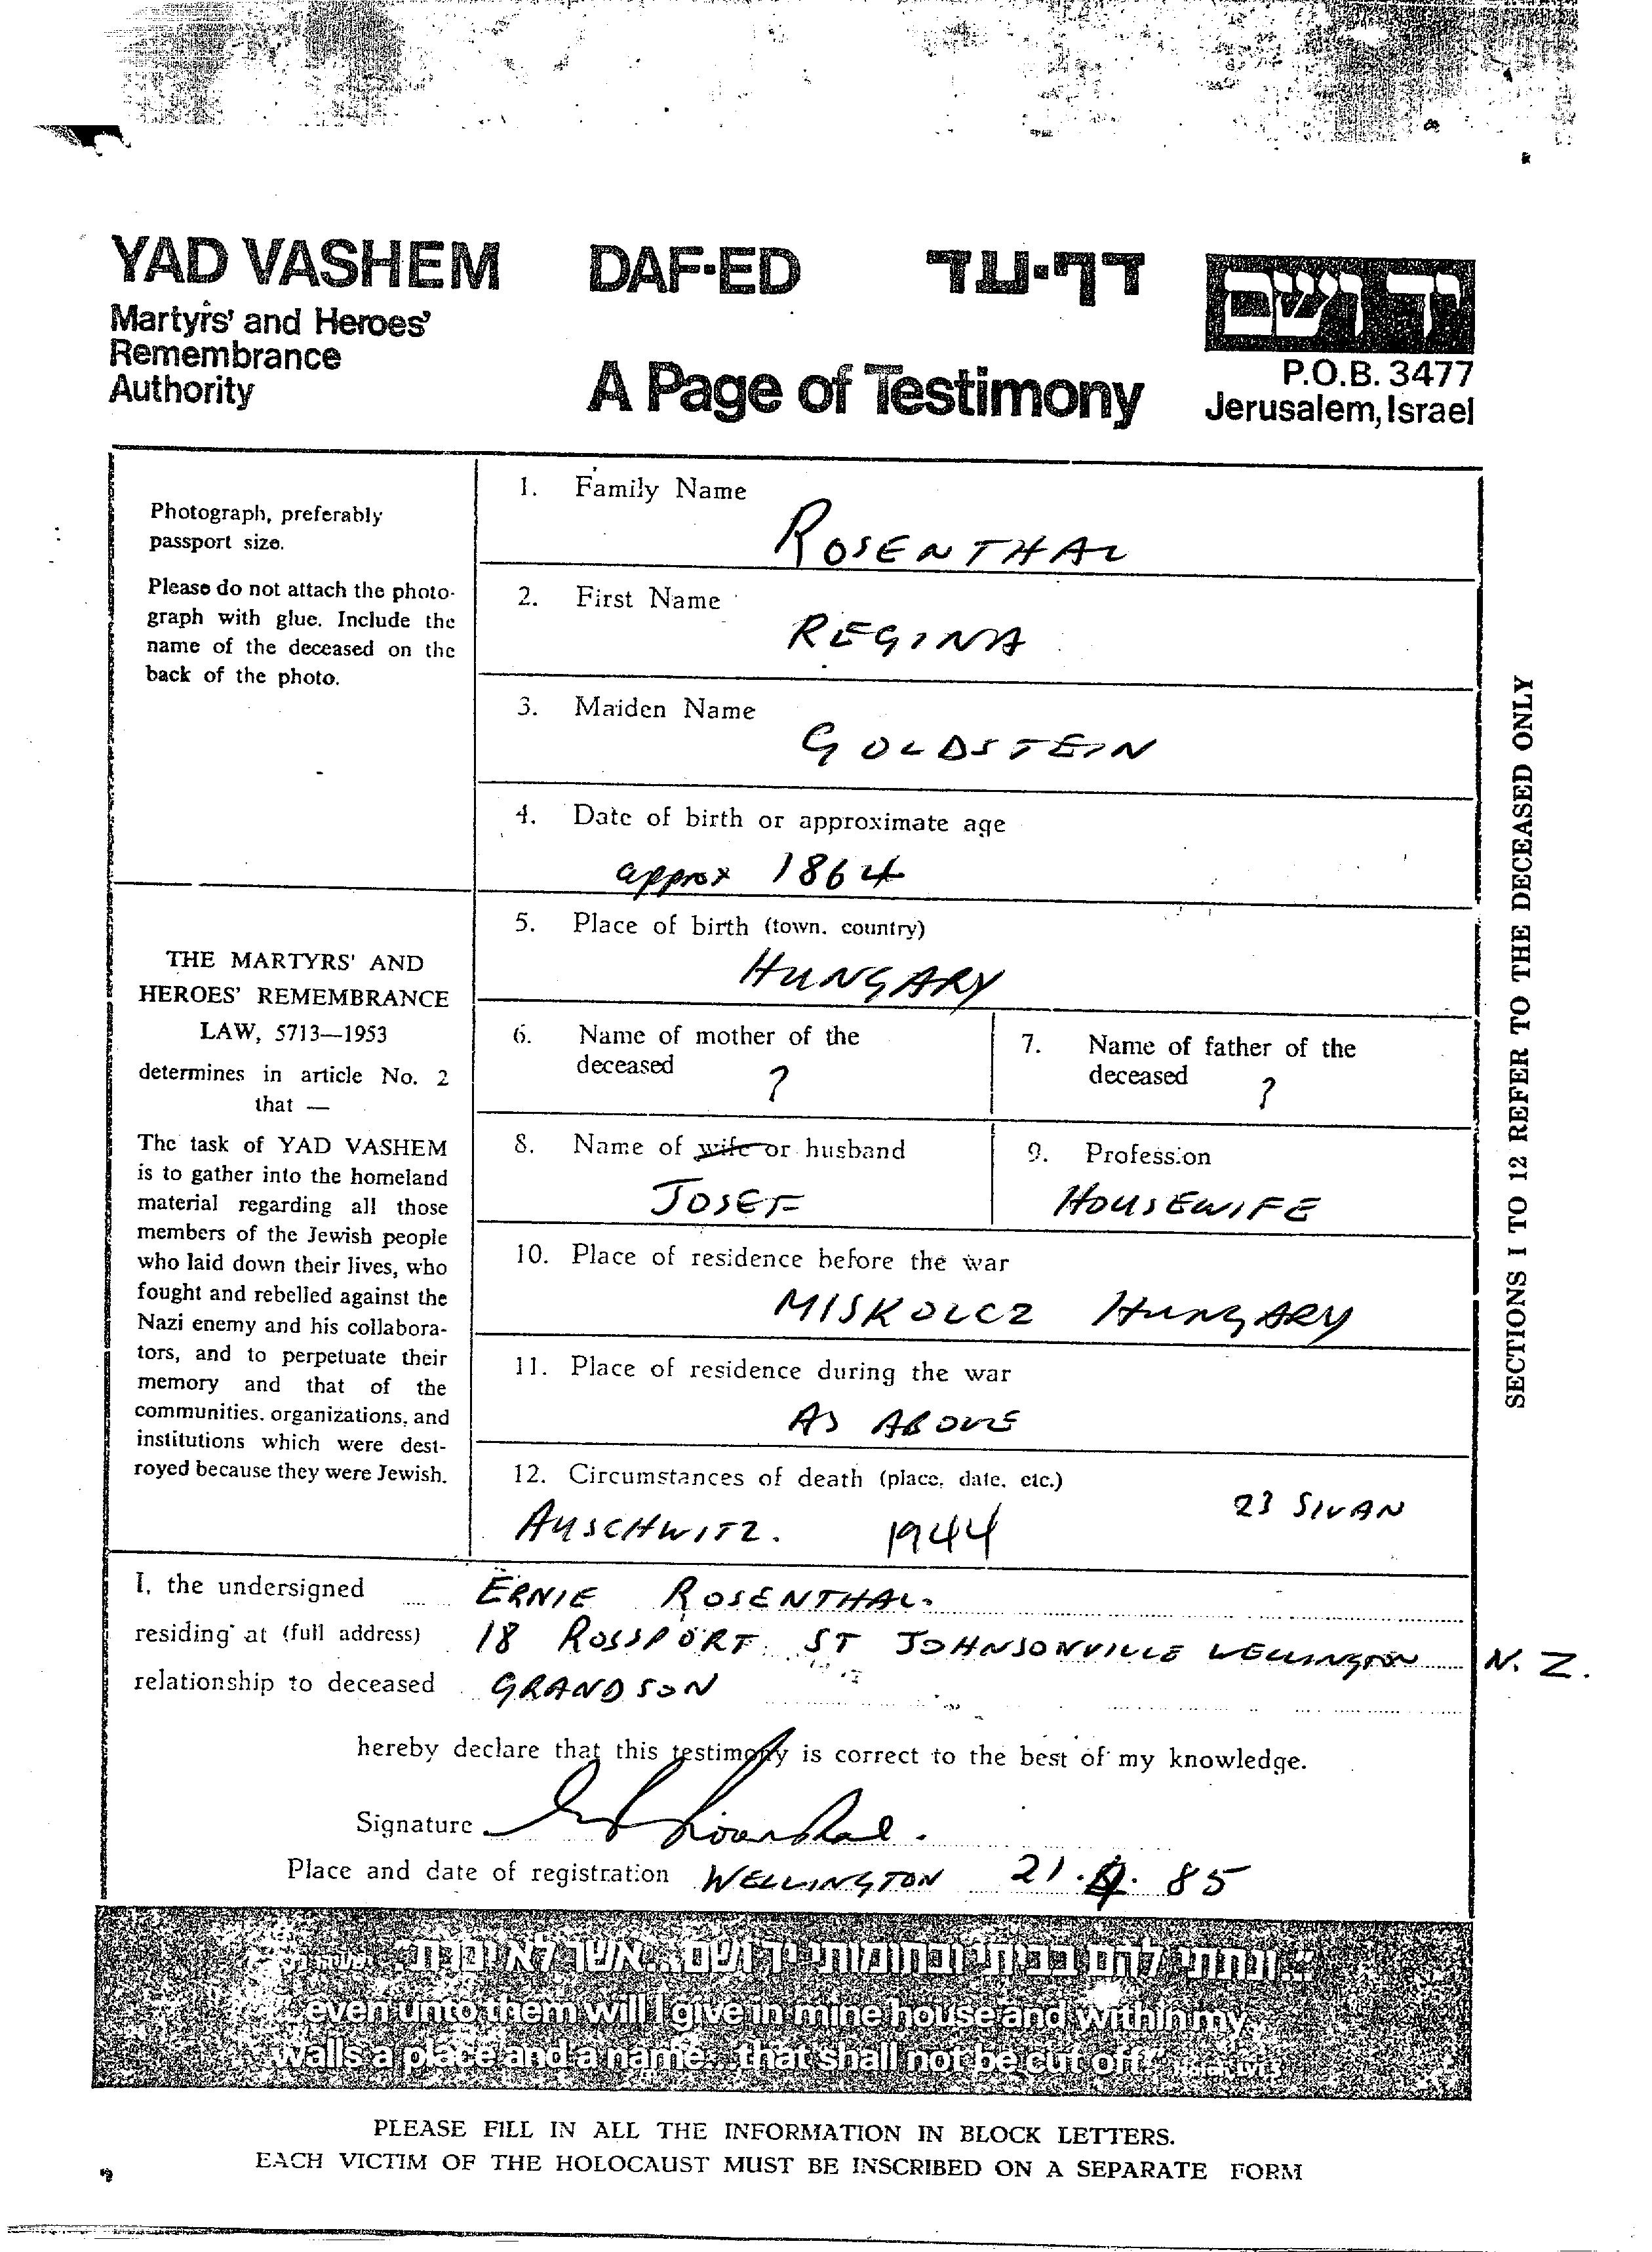 YAD VASHEM
Martyrs' and Heroes'
Remembrance
Authority
DAF-ED
דף-עד
A Page of Testimony
יד ושם
P.O.B. 3477
Jerusalem, Israel
Photograph, preferably
passport size.
Please do not attach the photo-
graph with glue. Include the
name of the deceased on the
back of the photo.
THE MARTYRS' AND
HEROES' REMEMBRANCE
LAW, 5713—1953
determines in article No. 2
that —
The task of YAD VASHEM
is to gather into the homeland
material regarding all those
members of the Jewish people
who laid down their lives, who
fought and rebelled against the
Nazi enemy and his collabora-
tors, and to perpetuate their
memory and that of the
communities, organizations, and
institutions which were dest-
royed because they were Jewish.
1. Family Name
ROSENTHAL
2. First Name
REGINA
3. Maiden Name
GOLDSTEIN
4. Date of birth or approximate age
approx 1864
5. Place of birth (town, country)
HUNGARY
6. Name of mother of the
deceased ?
7. Name of father of the
deceased ?
8. Name of wife or husband
JOSEF
9. Profession
HOUSEWIFE
10. Place of residence before the war
MISKOLCZ HUNGARY
11. Place of residence during the war
AS ABOVE
12. Circumstances of death (place, date, etc.)
23 SIVAN
AUSCHWITZ. 1944
SECTIONS 1 TO 12 REFER TO THE DECEASED ONLY
I, the undersigned ERNIE ROSENTHAL.
residing at (full address) 18 ROSSPORT ST JOHNSONVILLE WELLINGTON N. Z.
relationship to deceased GRANDSON
hereby declare that this testimony is correct to the best of my knowledge.
Signature
Place and date of registration WELLINGTON 21. 85
"...ונתתי להם בביתי ובחומותי יד ושם...אשר לא יכרת"
"...even unto them will I give in mine house and within my
walls a place and a name...that shall not be cut off."
PLEASE FILL IN ALL THE INFORMATION IN BLOCK LETTERS.
EACH VICTIM OF THE HOLOCAUST MUST BE INSCRIBED ON A SEPARATE FORM